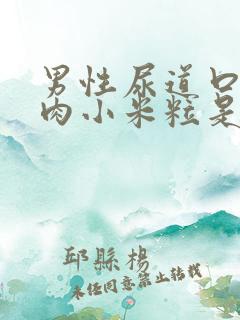 男性尿道口
肉小米粒是
邱县杨
未经同意禁止转载